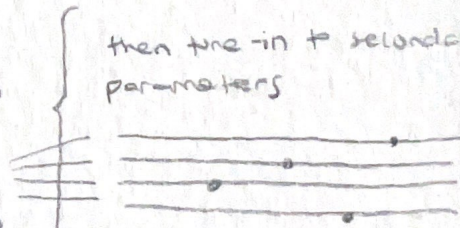 then tune-in to seconda
parameters